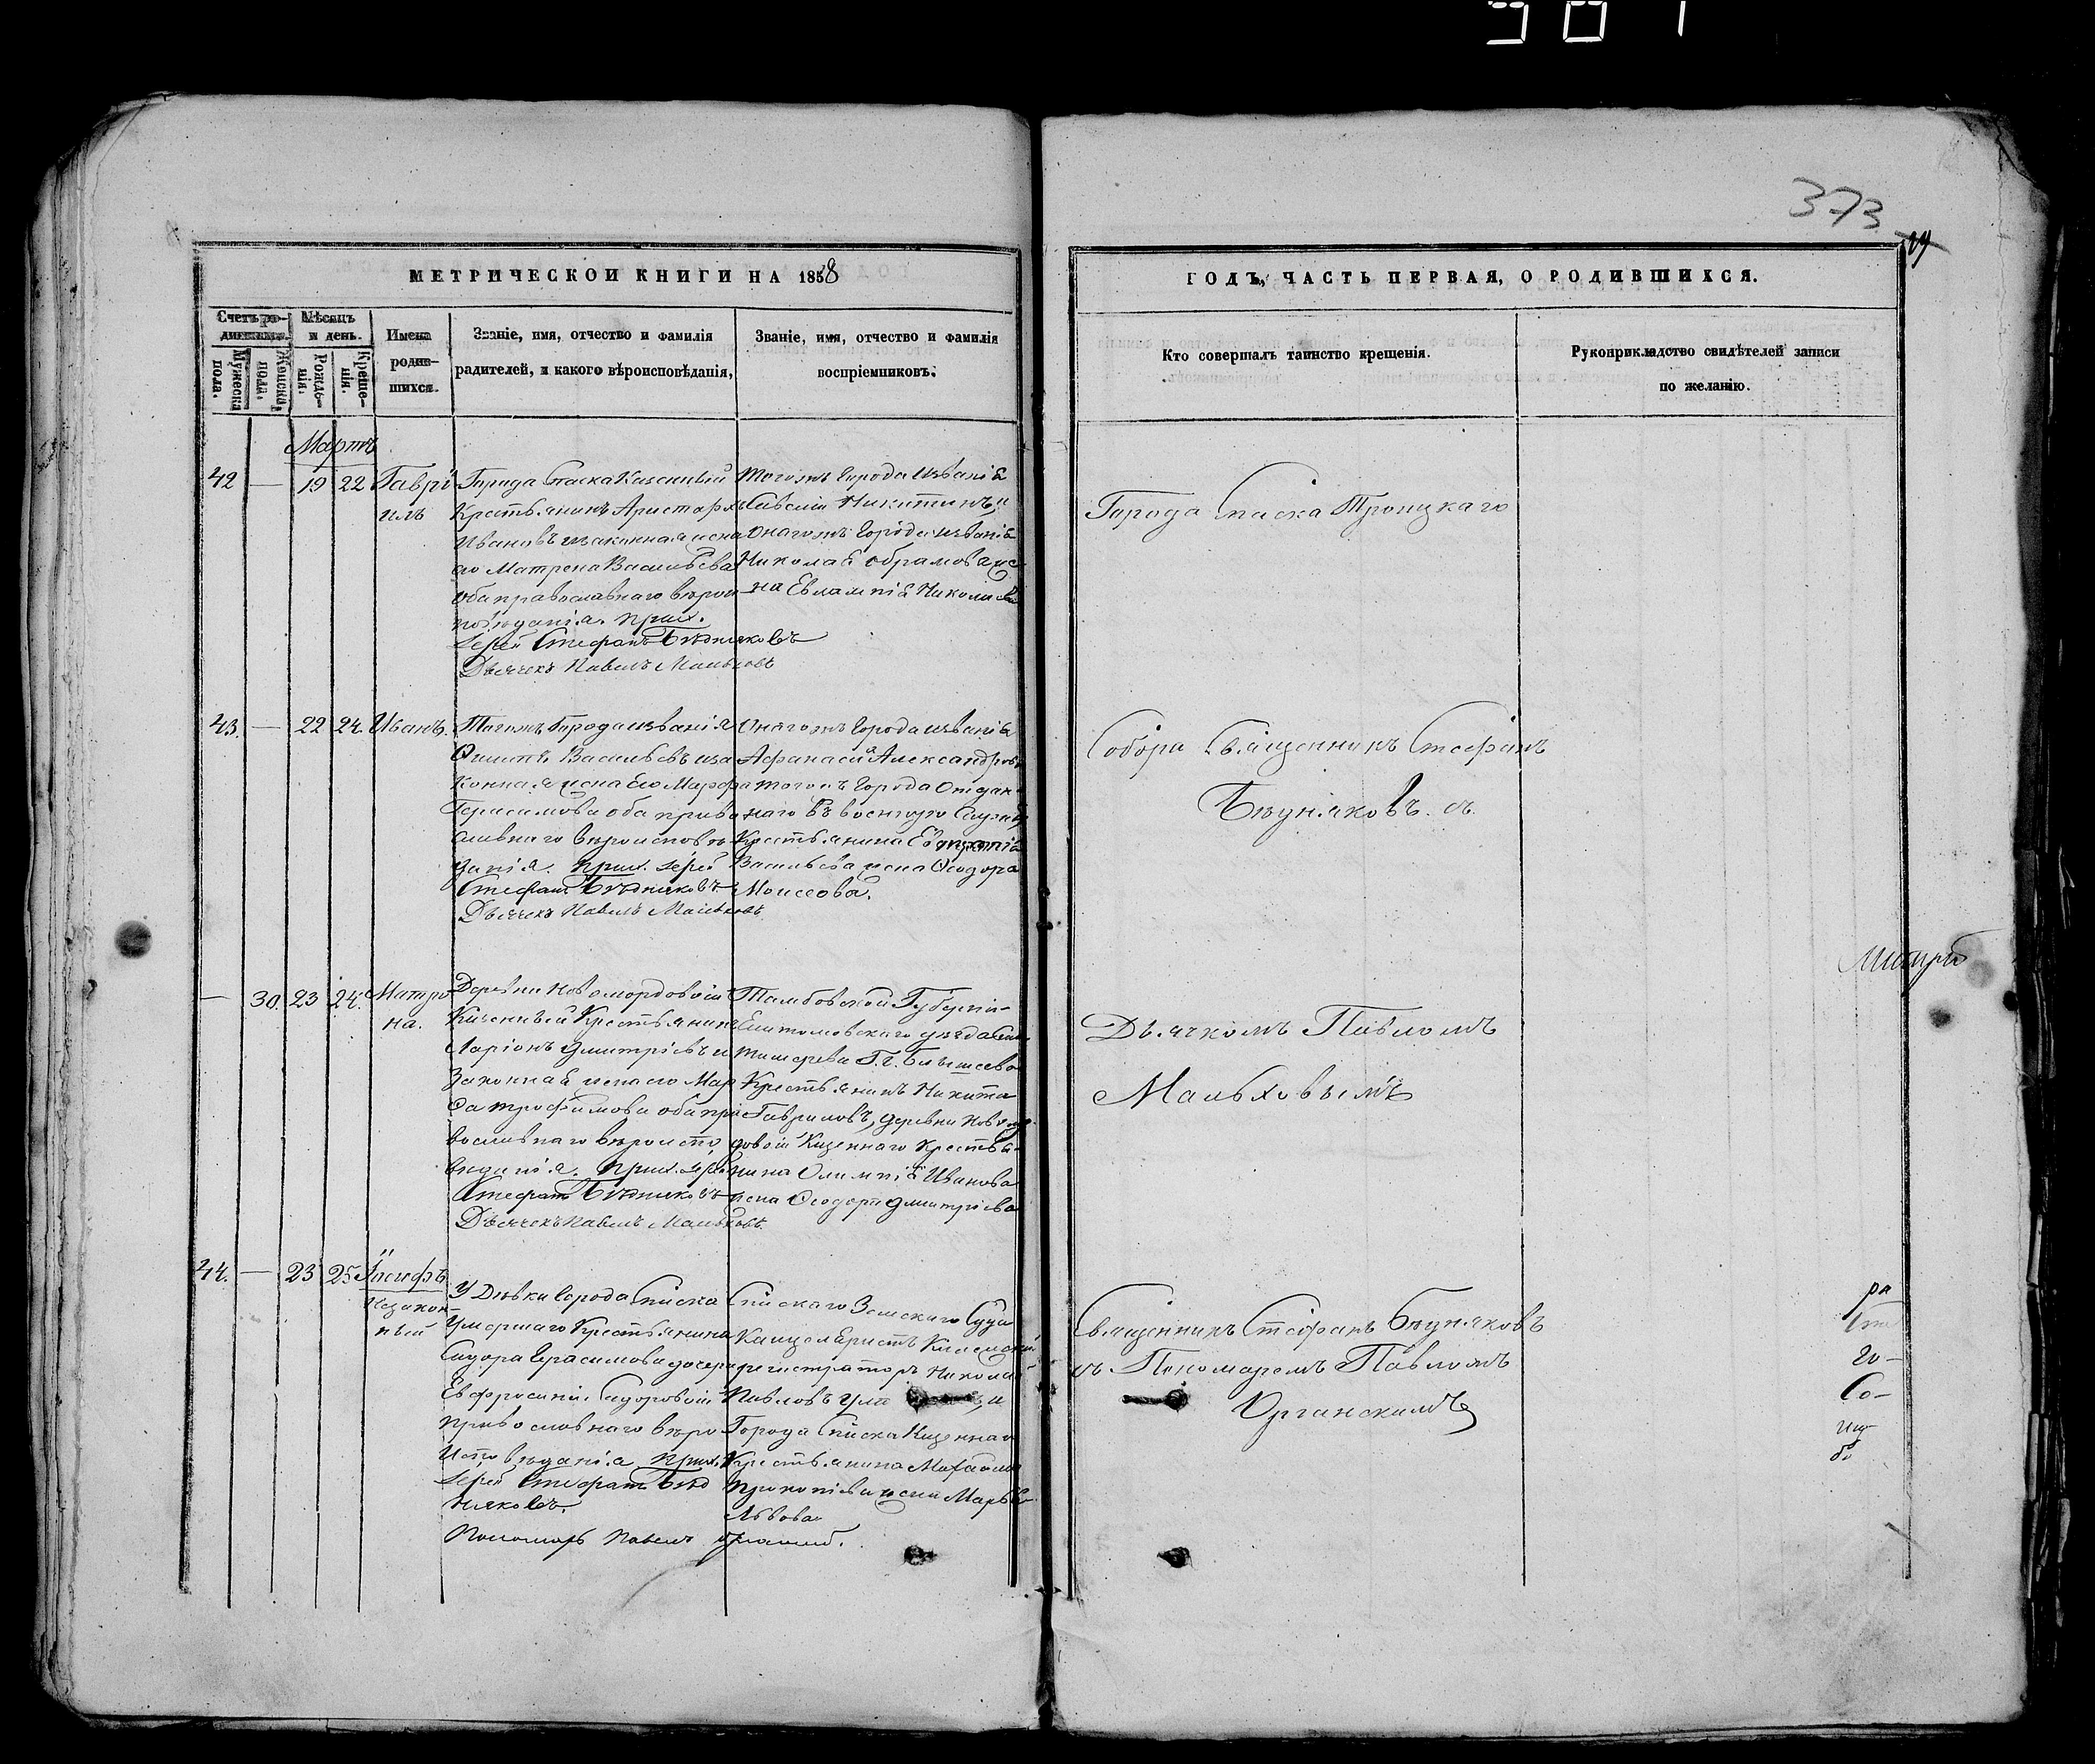 373
МЕТРИЧЕСКОЙ КНИГИ НА 1858
ГОДЪ, ЧАСТЬ ПЕРВАЯ, О РОДИВШИХСЯ.
Счетъ родившихся.
Мужеска пола.
Женска, пола.
Мѣсяцъ и день.
Рождения.
Крещения.
Имена родившихся.
Званіе, имя, отчество и фамилія
радителей, и какого вѣроисповѣданія,
Званіе, имя, отчество и фамилія
воспріемниковъ.
Кто совершалъ таинство крещенія.
Рукоприкладство свидѣтелей записи
по желанію.
Мартъ
42 — 19 22 Гаврі
илъ
Города Спаска Казенный
Крестьянинъ Аристархъ
Ивановъ и законная жена
его Матрена Васильева
оба православнаго вѣроис
повѣданія. Прих.
Іерей Стефанъ Бѣдняковъ
Дьячекъ Павелъ Мальховъ
Тогожъ Города и званія
Никитинъ, и
онагожъ Города и званія
Николая Абрамова же
на Евлампія Николаева
43. — 22 24. Иванъ.
Тогожъ Города и званія
Филипъ Васильевъ и за
конная жена его Марфа
Герасимова оба право
славнаго вѣроисповѣ
данія. Прих. Іерей
Стефанъ Бѣдняковъ
Дьячекъ Павелъ Мальховъ
Онагожъ Города и званія
Афанасій Александровъ
тогожъ Города Отдан
наго въ военную службу
Крестьянина
Васильева жена Ѳеодора
Моисеова.
— 30. 23 24. Матро
на.
Деревни Новомордовской
Казенный Крестьянинъ
Ларіонъ Дмитріевъ и
Законная жена его Мар
ѳа Трофимова оба пра
вославнаго вѣроиспо
вѣданія. Прих. Іерей
Стефанъ Бѣдняковъ
Дьячекъ Павелъ Мальховъ.
Тамбовской Губерніи
Елатомскаго уѣзда
Крестьянинъ Никита
Гавриловъ, деревни Новомор
довой Казеннаго Крестья
нина Олимпія Иванова
жена Ѳеодора Дмитріева
44. — 23 25 Іосифъ
Незакон
ный
У Дѣвки Города Спаска
Умершаго Крестьянина
Сидора Герасимова дочери
Евфросиніи Сидоровой
православнаго вѣро
исповѣданія. Прих.
Іерей Стефанъ Бѣд
няковъ.
Пономарь Павелъ Урганскій.
Спаскаго Земскаго Суда
Канцеляристъ Колежскій
регистраторъ Николай
Павловъ и
Города Спаска Казеннаго
Крестьянина Михаила
Прокопіева жена Марья
Львова
Города Спаска Троицкаго
Собора Священникъ Стефанъ
Бѣдняковъ съ
Дьячкомъ Павломъ
Мальховымъ
Священникъ Стефанъ Бѣдняковъ
съ Пономаремъ Павломъ
Урганскимъ
го-
Со-